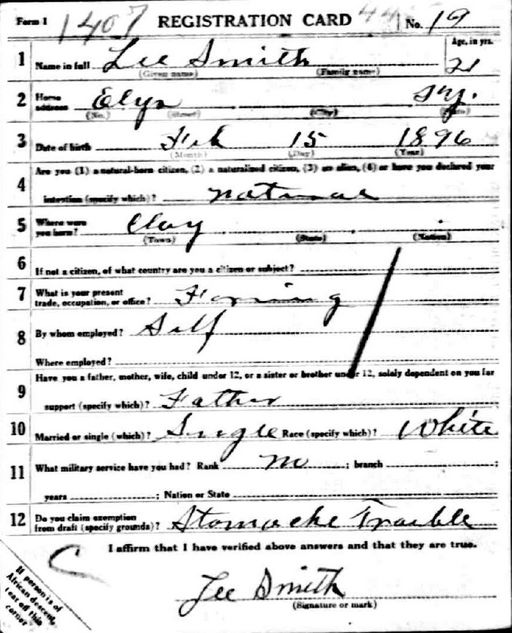 Form 1 1407 REGISTRATION CARD 44 No. 19
1 Name in full Lee Smith Age, in yrs. 21
(Given name) (Family name)
2 Home address Elys Ky.
(No.) (Street) (City) (State)
3 Date of birth Feb 15 1896
(Month) (Day) (Year)
Are you (1) a natural-born citizen, (2) a naturalized citizen, (3) an alien, (4) or have you declared your
4 intention (specify which)? natural
5 Where were you born? Clay
(Town) (State) (Nation)
6 If not a citizen, of what country are you a citizen or subject?
7 What is your present trade, occupation, or office? Farming
8 By whom employed? Self
Where employed?
Have you a father, mother, wife, child under 12, or a sister or brother under 12, solely dependent on you for
9 support (specify which)? Father
10 Married or single (which)? Single Race (specify which)? White
11 What military service have you had? Rank no ; branch ;
years ; Nation or State
12 Do you claim exemption from draft (specify grounds)? Stomache Trouble
I affirm that I have verified above answers and that they are true.
Lee Smith
(Signature or mark)
If person is of
African descent,
tear off this
corner